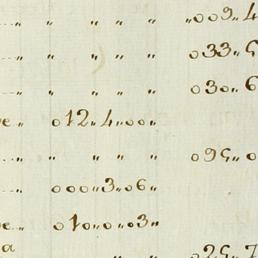 „ „ „ „ „009„4
„ „ „ „ 033„5
„ „ „ „ 030„6
e„ 012„4„00„
„ „ „ „ 095„0
„ 000„3„06„
e„ 010„0„03„
a „ „ 025„7